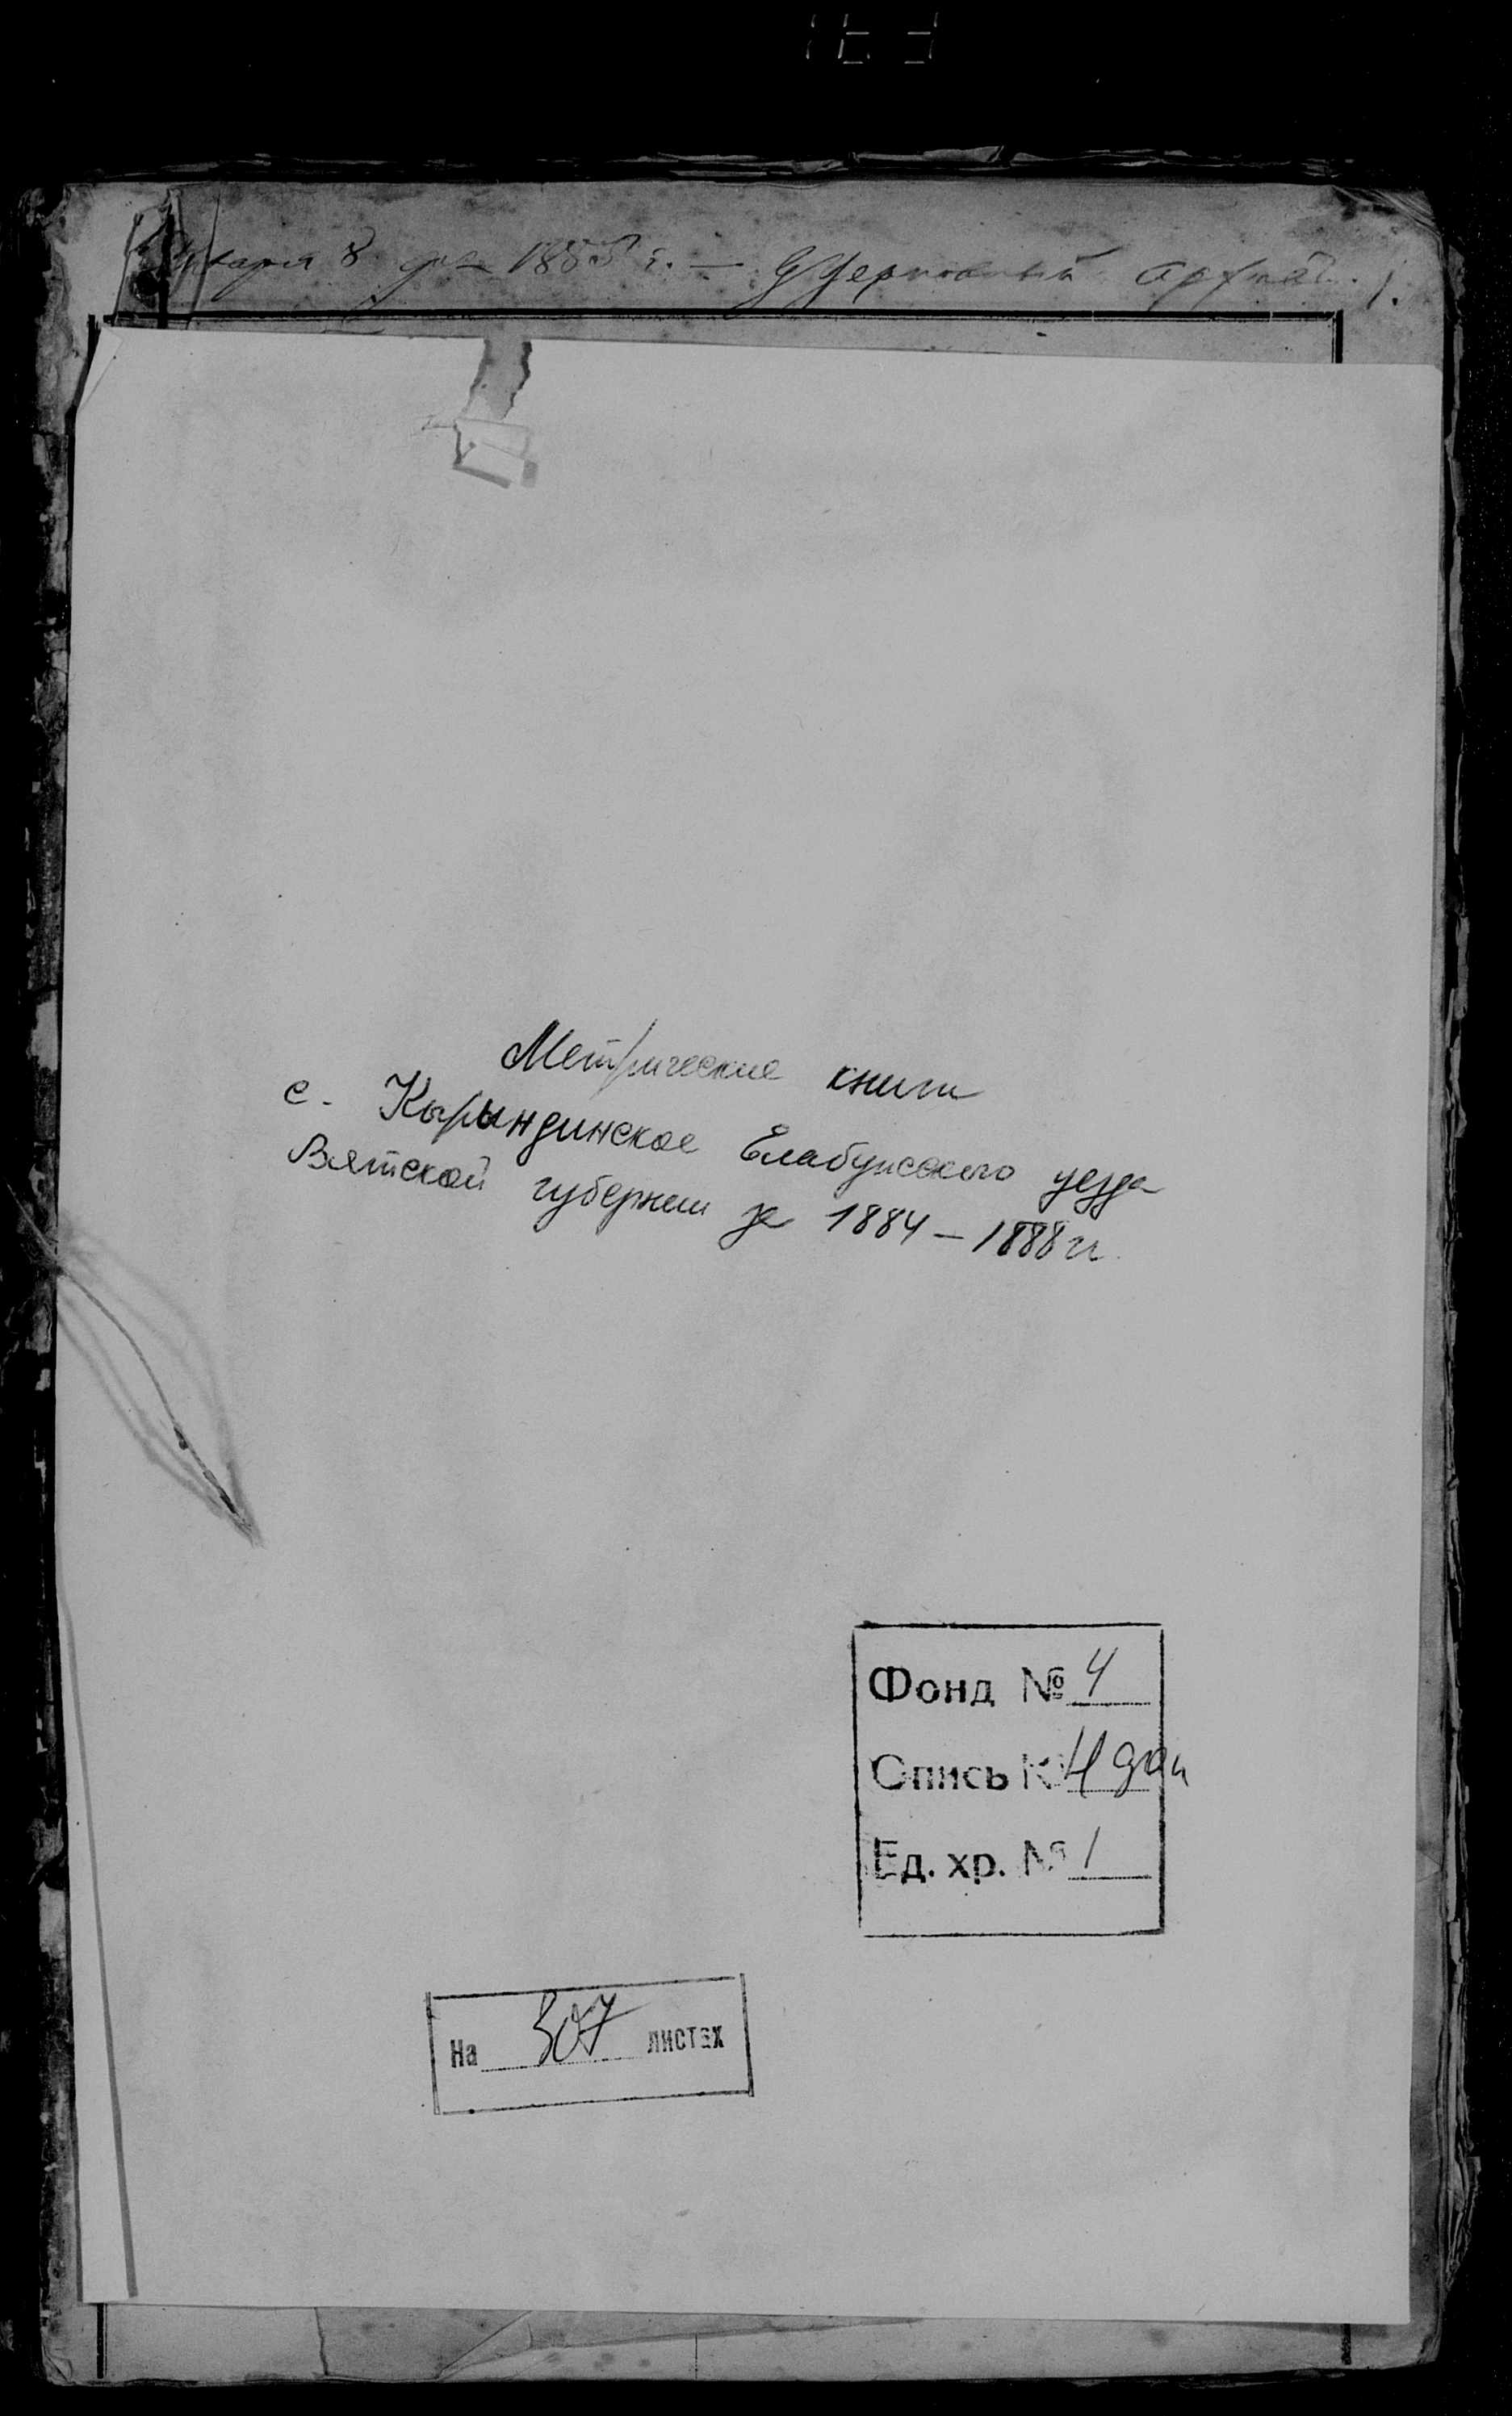 января 8 дня 1885 г. — Церковный архив.
Метрические книги
с. Кырындинское Елабужского уезда
Вятской губернии за 1884 – 1888 гг.
Фонд № 4
Опись № 4 доп
Ед. хр. № 1
На 307 листах